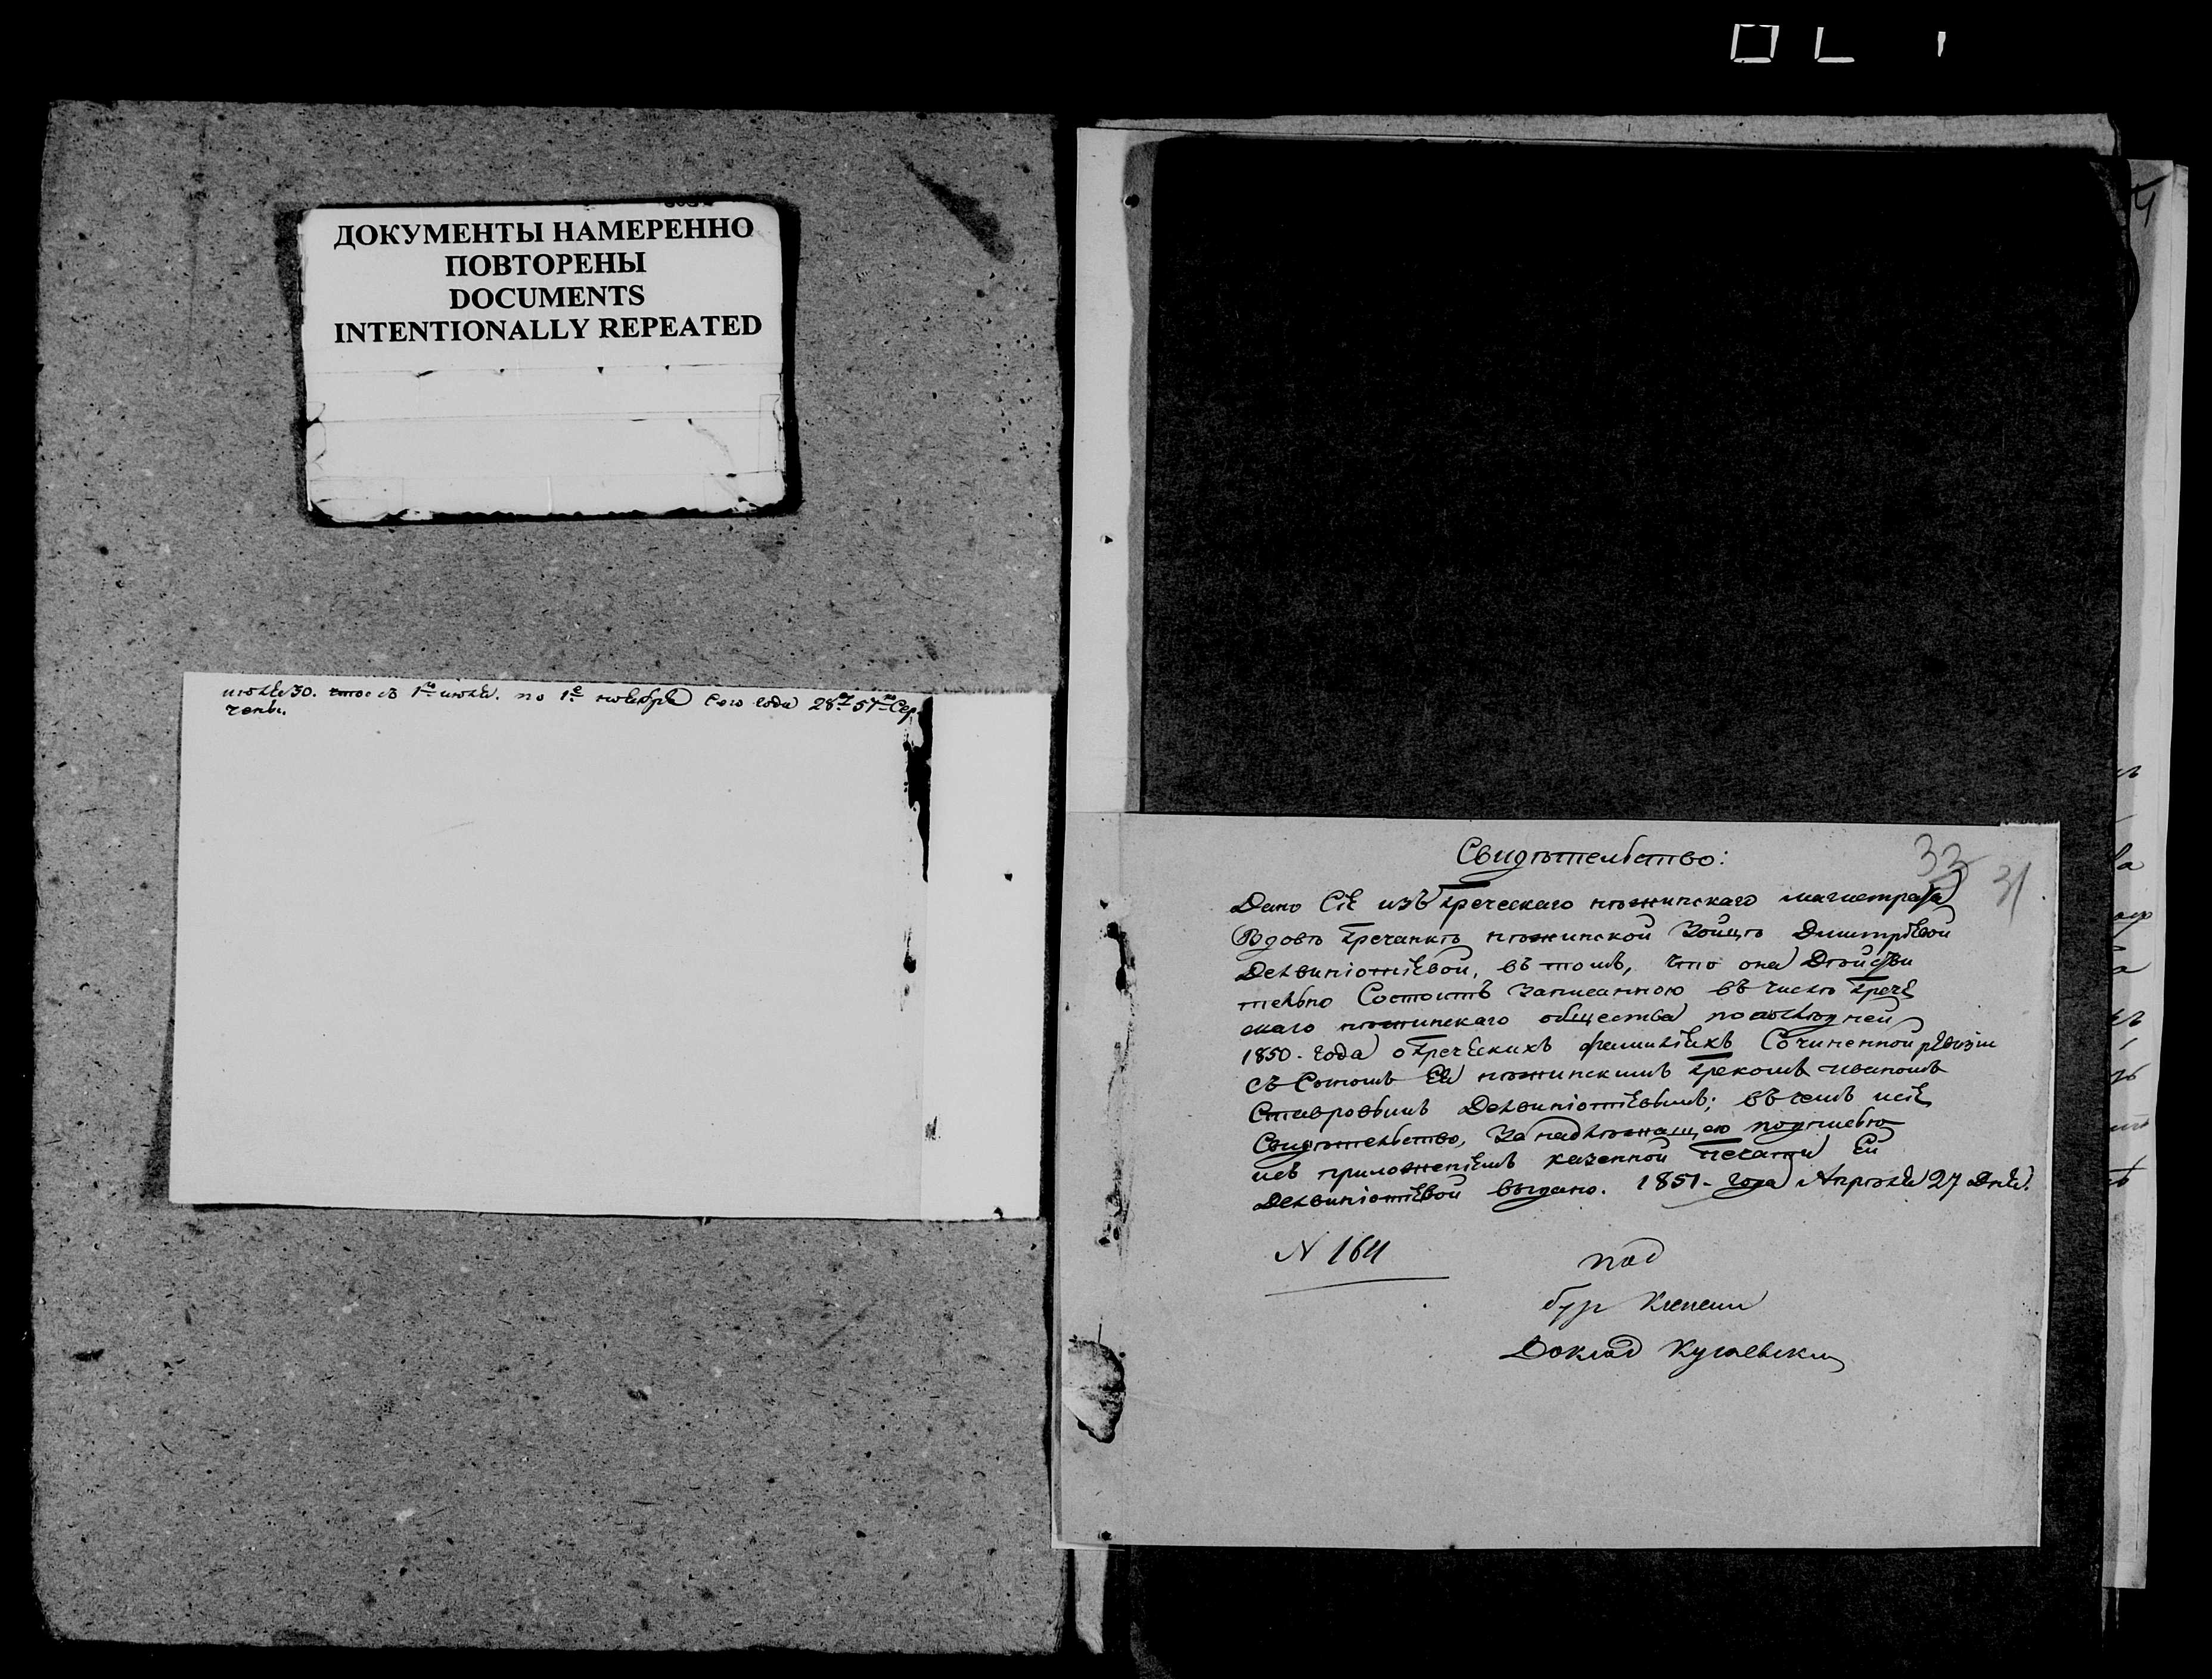 ДОКУМЕНТЫ НАМЕРЕННО
ПОВТОРЕНЫ
DOCUMENTS
INTENTIONALLY REPEATED
июля 30. съ 1го июля. по 1е ноября сего года 28 57 Сер.
33 31
Свидѣтельство:
Дано Сіе изъ греческаго нѣжинскаго магистрата
Вдовѣ гречанкѣ нѣжинской Зоицѣ Димитріевой
Делвиніотіевой, въ томъ, что она Дѣйстви
тельно Состоитъ Записанною въ числѣ грече
скаго нѣжинскаго общества по послѣдней
1850. года о греческихъ фамиліяхъ Сочиненной ревизіи
съ Сыномъ Ея нѣжинскимъ грекомъ Иваномъ
Ставровымъ Делвиніотіевымъ; въ чемъ и сіе
Свидѣтельство, За надлѣжащею подписью
и съ приложеніемъ казенной печати Ей
Делвиніотіевой выдано. 1851. года Апрѣля 27 Дня.
N 164
под
бур
Доклад